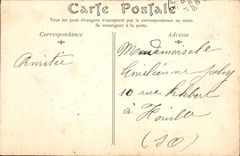 Carte Postale
Tous les pays étrangers n'acceptent pas la correspondance au recto.
Se renseigner à la poste.
Correspondance
Adresse
Amitié
Mademoiselle
Emilienne
10 rue Kleber
à
(SO)